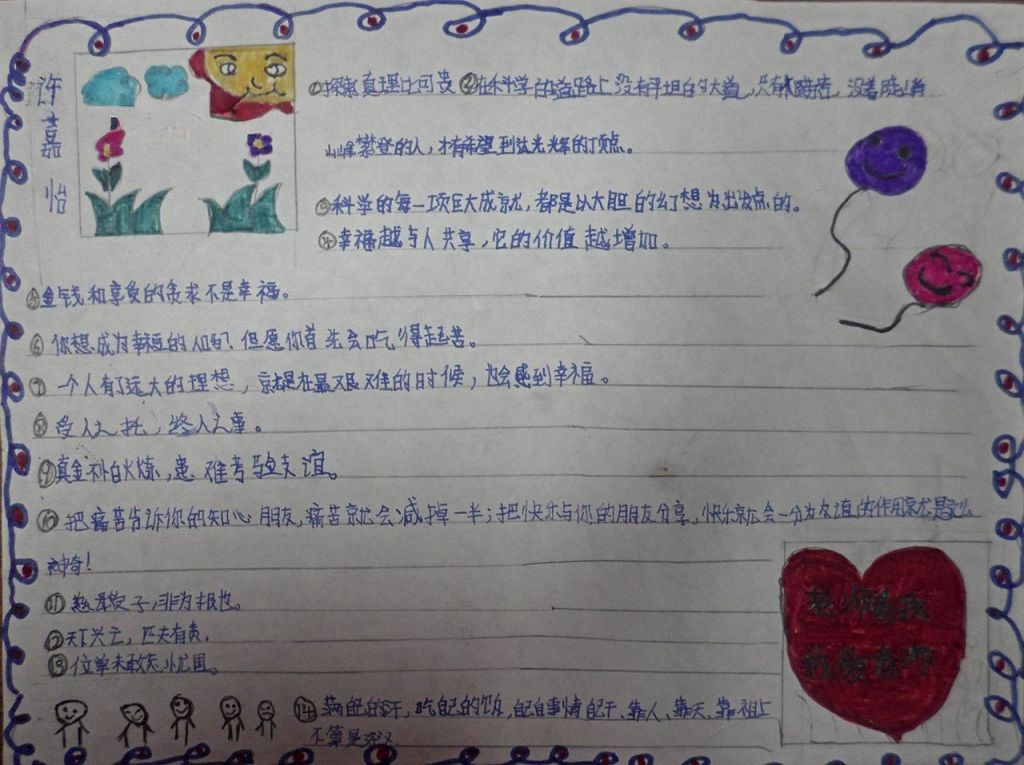 许嘉怡
①探索真理之可贵 ②在科学的道路上没有平坦的大道，只有不畏
山峰攀登的人，才有希望到达光辉的顶点。
③科学的每一项巨大成就，都是以大胆的幻想为出发点的。
④幸福越与人共享，它的价值越增加。
⑤金钱和享受的贪求不是幸福。
⑥你想成为幸福的人吗？但愿你首先会吃得起苦。
⑦一个人有了远大的理想，就是在最艰难的时候，也会感到幸福。
⑧受人之托，终人之事。
⑨真金不怕火炼，患难考验友谊。
⑩把痛苦告诉你的知心朋友，痛苦就会减掉一半；把快乐与你的朋友分享，快乐就会一分为友谊的作用就是这么
神奇！
⑪子，非为报也。
⑫天下兴亡，匹夫有责。
⑬位卑未敢忘忧国。
⑭靠自己的汗，吃自己的饭，自己事情自己干，靠人、靠天、靠祖上
不算是
老师